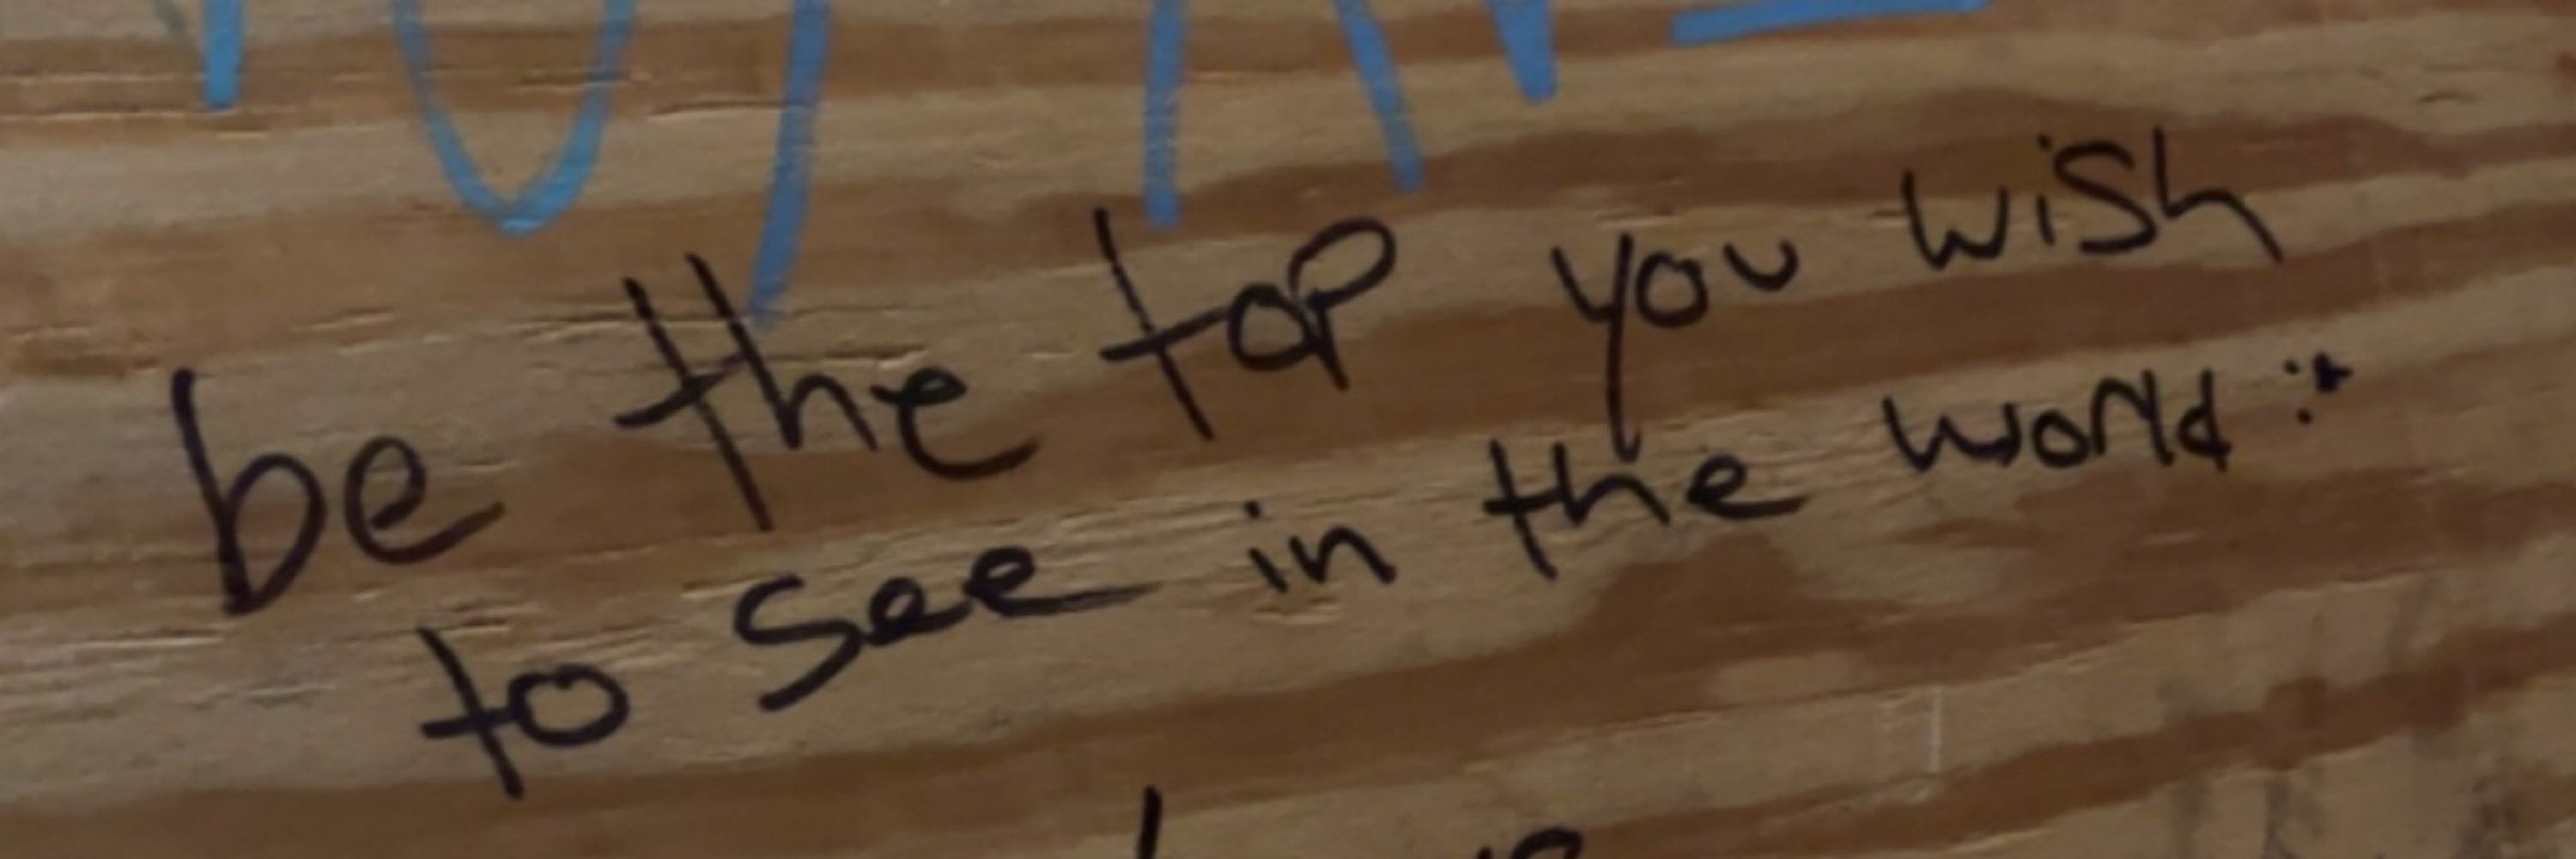 be the top you wish
to see in the world :*